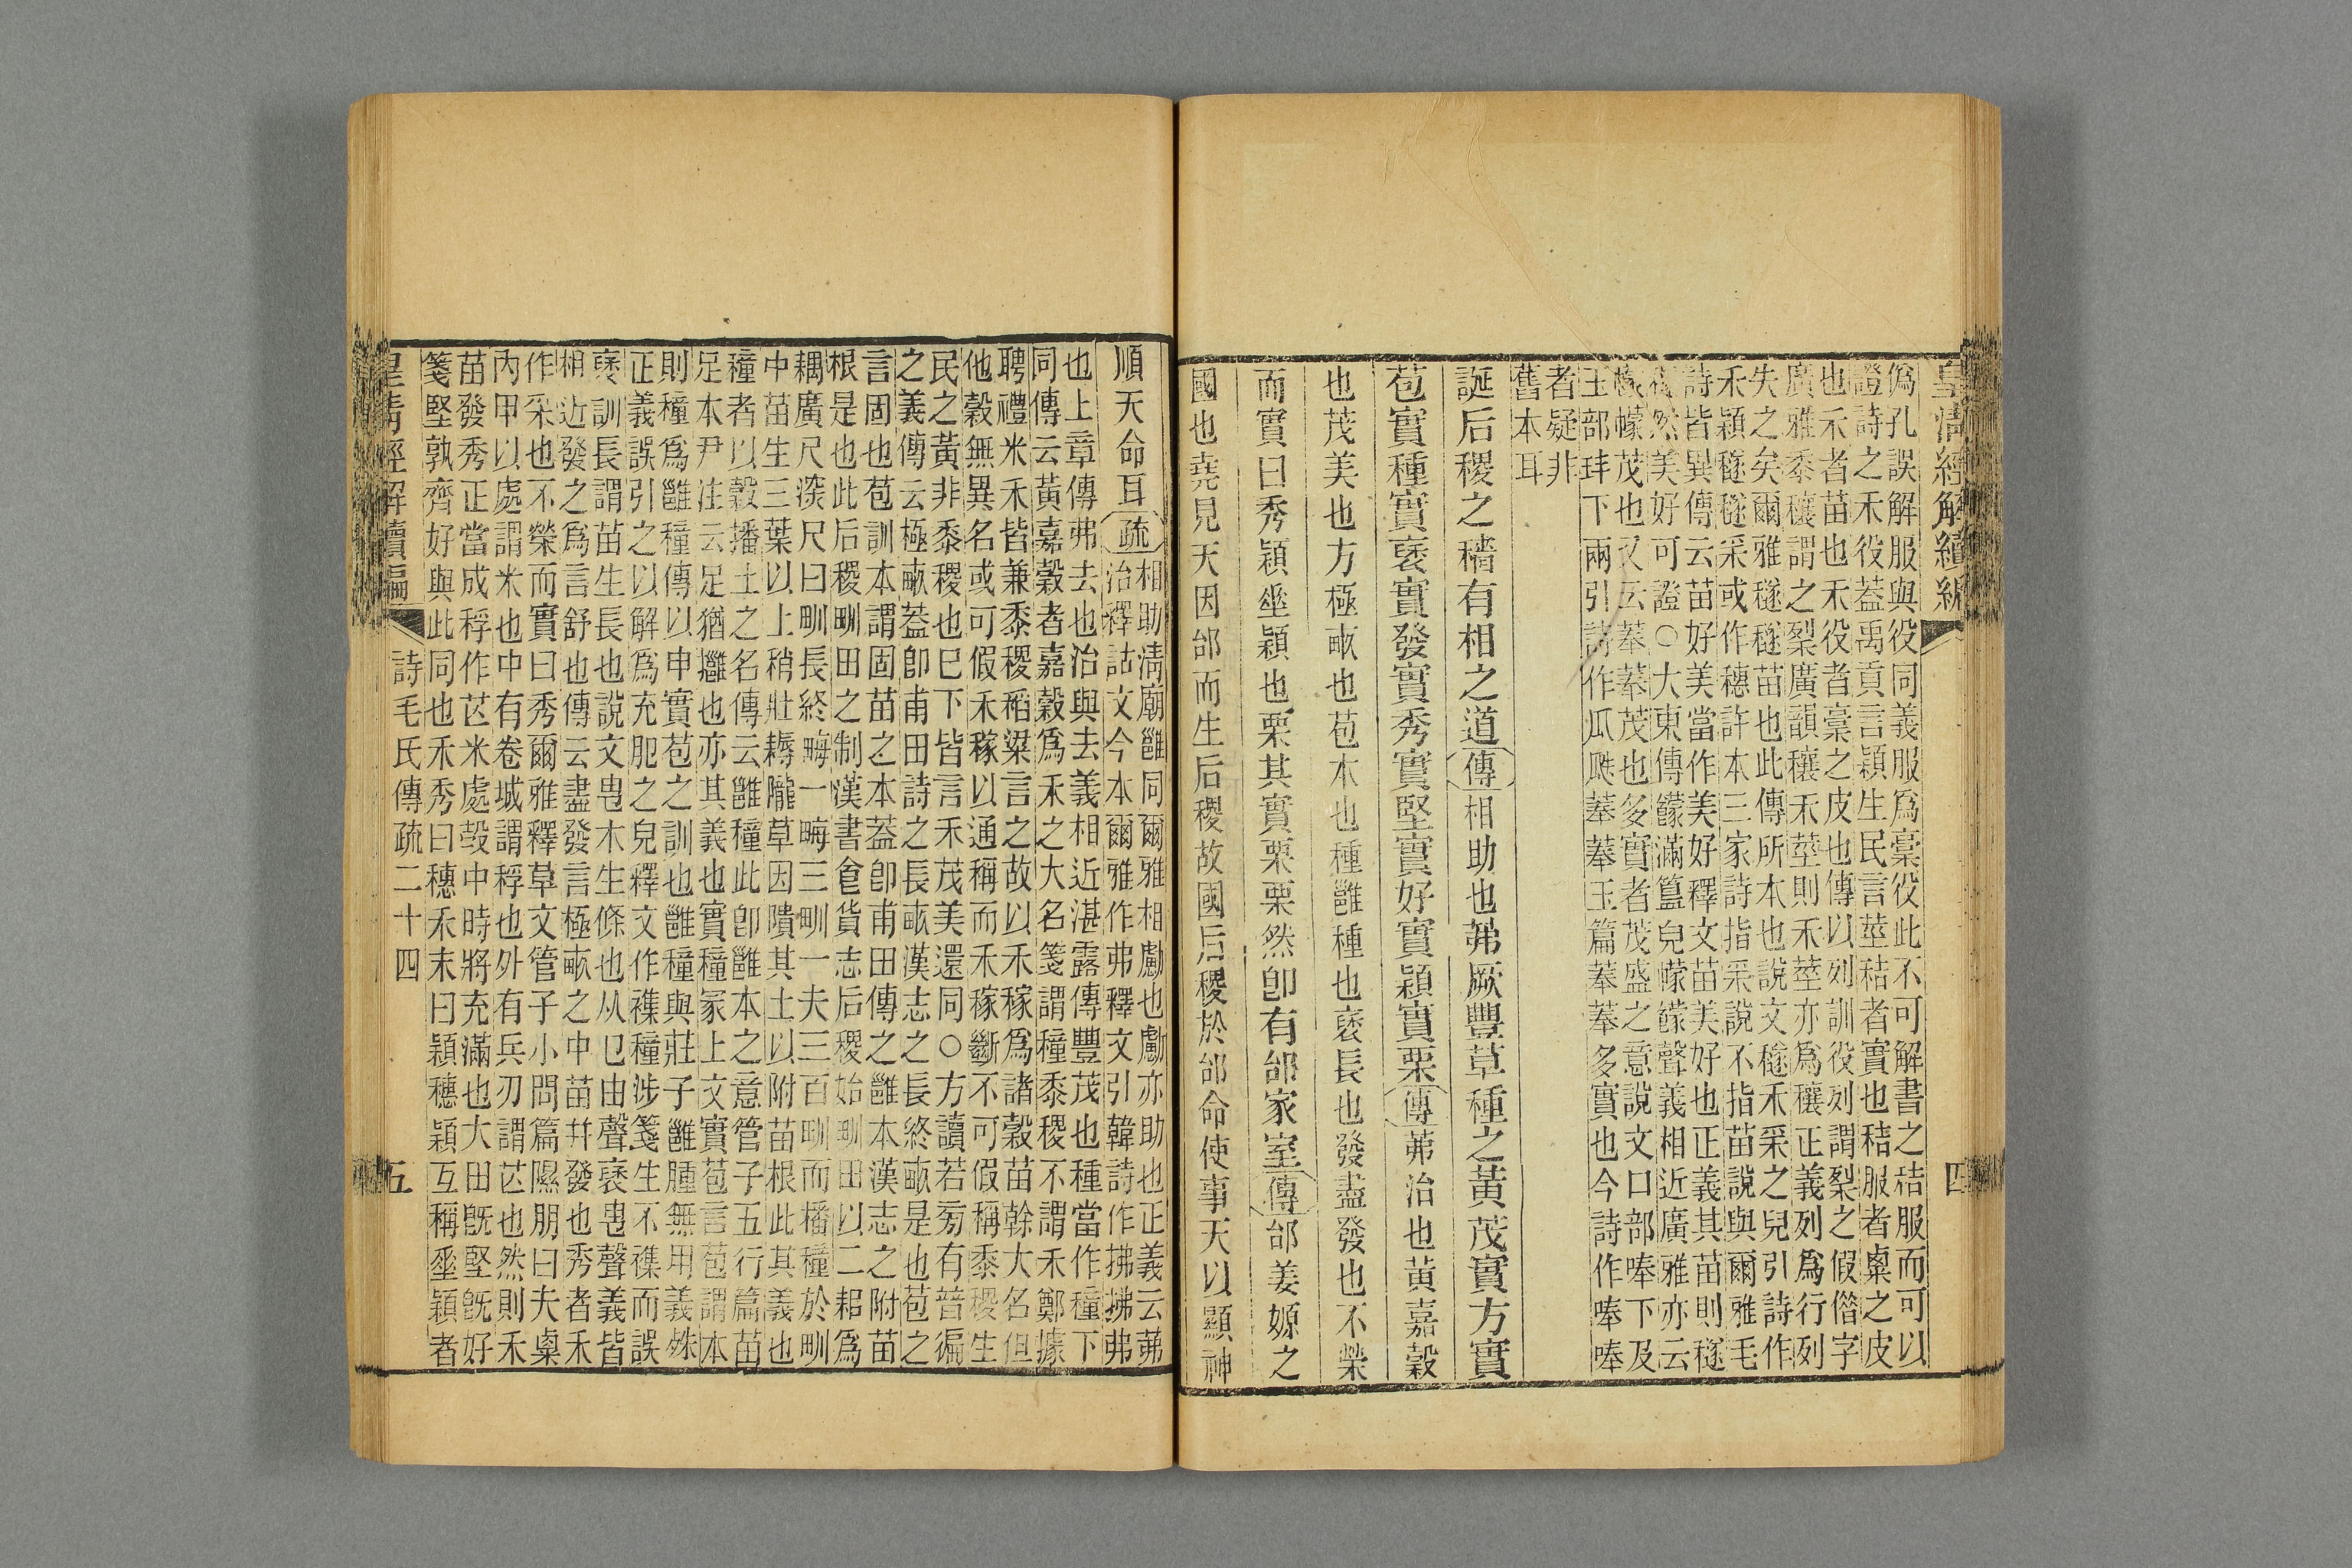 皇清經解續編
四
爲孔誤解服與役同義服爲稾役此不可解書之秸服而可以
證詩之禾役葢禹貢言穎生民言莖秸者實也秸服者稾之皮
也禾者苗也禾役者稾之皮也傳以列訓役列謂梨之假僣字
廣雅黍穰謂之梨廣韻穰禾莖則禾莖亦爲穰正義列爲行列
失之矣爾雅穟穟苗也此傳所本也說文穟禾采之皃引詩作
禾穎穟穟采或作穗許本三家詩指采說不指苗說與爾雅毛
詩皆異傳云苗好美當作美好釋文苗美好也正義其苗則穟
穟然美好可證○大東傳饛滿簋皃幪饛聲義相近廣雅亦云
幪幪茂也又云菶菶茂也多實者茂盛之意說文口部唪下及
玉部玤下兩引詩作瓜瓞菶菶玉篇菶菶多實也今詩作唪唪
者疑非
舊本耳
誕后稷之穡有相之道傳相助也茀厥豐草種之黃茂實方實
苞實種實褎實發實秀實堅實好實穎實栗傳茀治也黃嘉穀
也茂美也方極畝也苞本也種雝種也褎長也發盡發也不榮
而實曰秀穎垂穎也栗其實栗栗然卽有邰家室傳邰姜嫄之
國也堯見天因邰而生后稷故國后稷於邰命使事天以顯神
順天命耳疏
相助淸廟雝同爾雅相勴也勴亦助也正義云茀
治釋詁文今本爾雅作弗釋文引韓詩作拂拂弗
也上章傳弗去也治與去義相近湛露傳豐茂也種當作種下
同傳云黃嘉穀者嘉穀爲禾之大名箋謂種黍稷不謂禾鄭據
聘禮米禾皆兼黍稷稻粱言之故以禾稼爲諸穀苗幹大名但
他穀無異名或可假禾稼以通稱而禾稼斷不可假稱黍稷生
民之黃非黍稷也已下皆言禾茂美還同○方讀若旁有普徧
之義傳云極畝葢卽甫田詩之長畝漢志之長終畝是也苞之
言固也苞訓本謂固苗之本葢卽甫田傳之雝本漢志之附苗
根是也此后稷甽田之制漢書食貨志后稷始甽田以二耜爲
耦廣尺深尺曰甽長終畮一畮三甽一夫三百甽而播種於甽
中苗生三葉以上稍壯耨隴草因隤其土以附苗根此其義也
種者以穀播土之名傳云雝種此卽雝本之意管子五行篇苗
足本尹注云足猶擁也亦其義也實種冢上文實苞言苞謂本
則種爲雝種傳以申實苞之訓也雝種與莊子雝腫無用義殊
正義誤引之以解爲充肥之皃釋文作襍種涉箋生不襍而誤
褎訓長謂苗生長也說文甹木生條也从𠃑由聲褎甹聲義皆
相近發之爲言舒也傳云盡發言極畝之中苗幷發也秀者禾
作采也不榮而實曰秀爾雅釋草文管子小問篇隰朋曰夫粟
內甲以處謂米也中有卷城謂稃也外有兵刃謂芒也然則禾
苗發秀正當成稃作芒米處殼中時將充滿也大田旣堅旣好
箋堅孰齊好與此同也禾秀曰穗禾末曰穎穗穎互稱垂穎者
皇淸經解續編
詩毛氏傳疏二十四
五